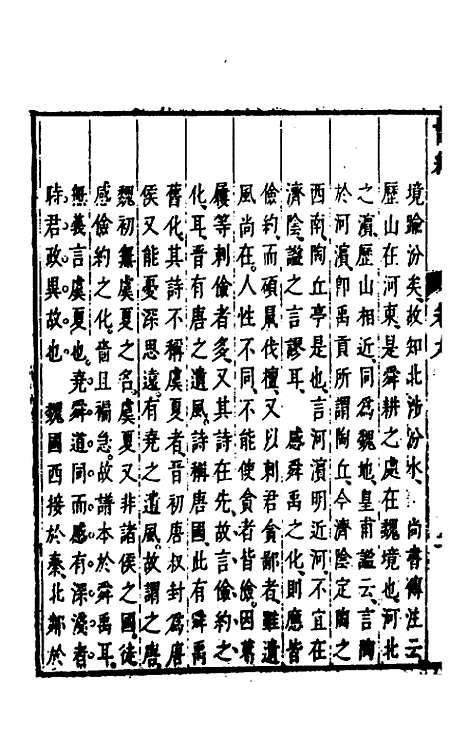 境踰汾矣故知北涉汾水 尚書傳注云
歷山在河東是舜耕之處在魏境也河北
之濵歷山相近同爲魏地皇甫謐云言陶
於河濵即禹貢所謂陶丘今濟陰定陶之
西南陶丘亭是也言河濵明近河不宜在
濟陰謐之言謬耳 感舜禹之化則應皆
儉約而碩鼠伐檀又以刺君貪鄙者雖遺
風尚在人性不同不能使貪者皆儉因葛
屨等刺儉者多又其詩在先故言儉約之
化耳晉有唐之遺風詩稱唐國此有舜禹
舊化其詩不稱虞夏者晉初唐叔封爲唐
侯又能憂深思遠有堯之遺風故謂之唐
魏初無虞夏之名虞夏又非諸侯之國徒
感儉約之化嗇且褊急故譜本於舜禹耳
無義言虞夏也堯舜道同而感有深淺者
時君政異故也 魏國西接於秦北鄰於
卷九